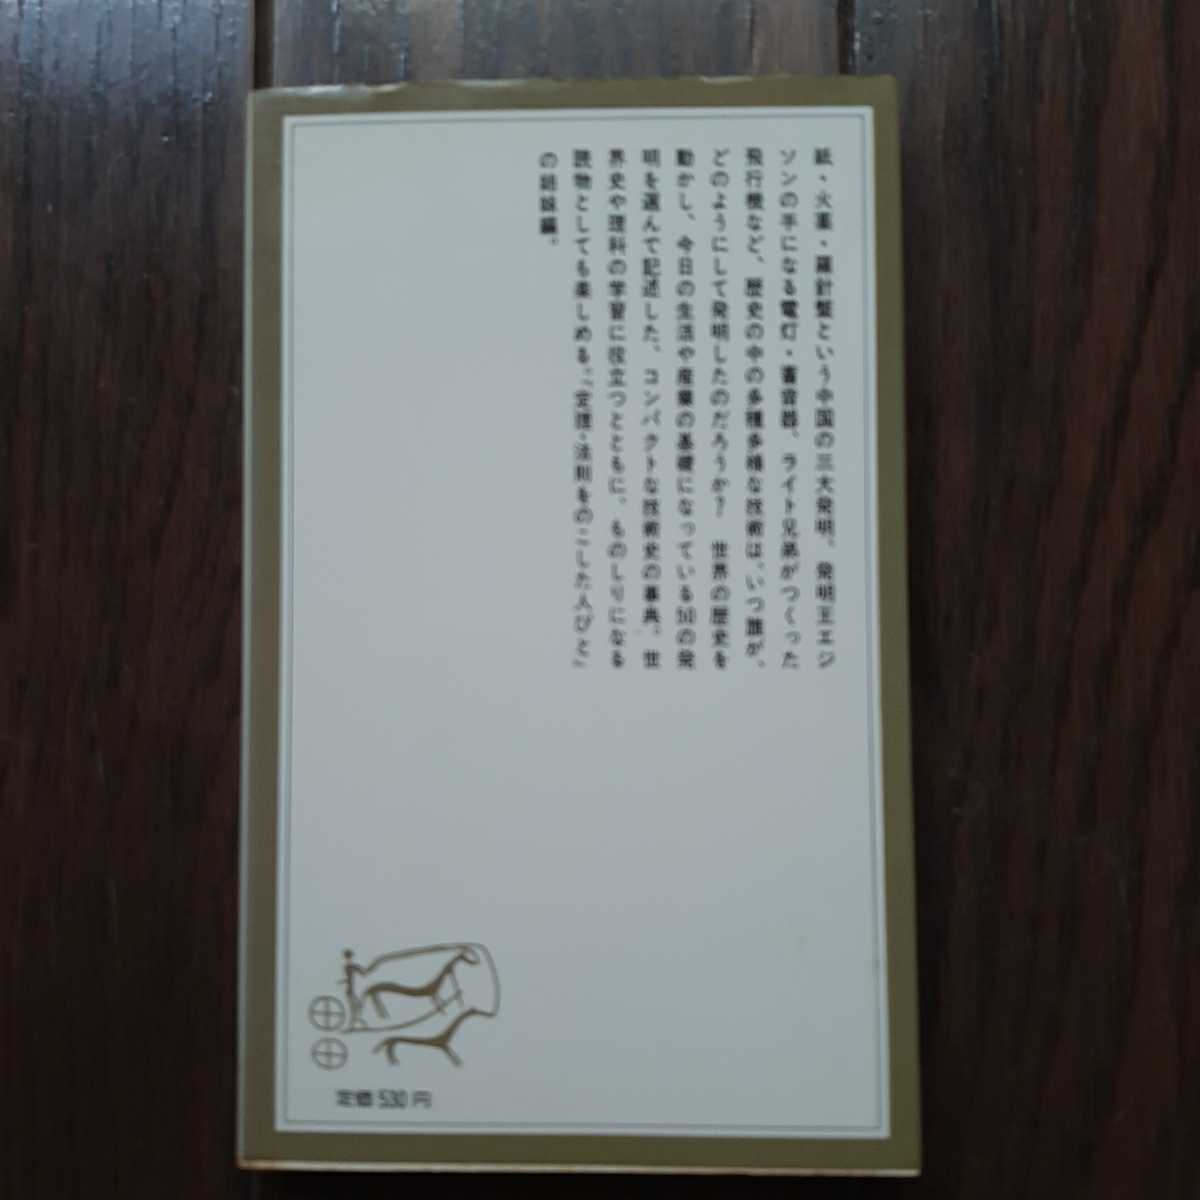 紙・火薬・羅針盤という中国の三大発明。発明王エジ
ソンの手になる電灯・蓄音器、ライト兄弟がつくった
飛行機など、歴史の中の多種多様な技術は、いつ誰が、
どのようにして発明したのだろうか？　世界の歴史を
動かし、今日の生活や産業の基礎になっている50の発
明を選んで記述した、コンパクトな技術史の事典。世
界史や理科の学習に役立つとともに、ものしりになる
読物としても楽しめる、『定理・法則をのこした人びと』
の姉妹編。
定価 530 円